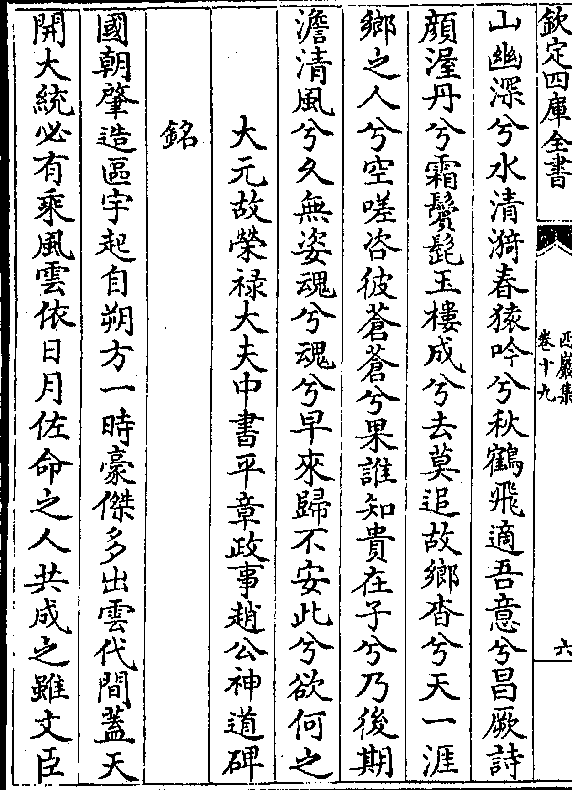 欽定四庫全書
西巖集
卷十九
六
山幽深兮水清漪春猿吟兮秋鶴飛適吾意兮昌厥詩
顔渥丹兮霜鬢髭玉樓成兮去莫追故鄉杳兮天一涯
鄉之人兮空嗟咨彼蒼蒼兮果誰知貴在子兮乃後期
澹清風兮久無姿魂兮魂兮早來歸不安此兮欲何之
大元故榮祿大夫中書平章政事趙公神道碑
銘
國朝肇造區宇起自朔方一時豪傑多出雲代間蓋天
開大統必有乘風雲依日月佐命之人共成之雖文臣